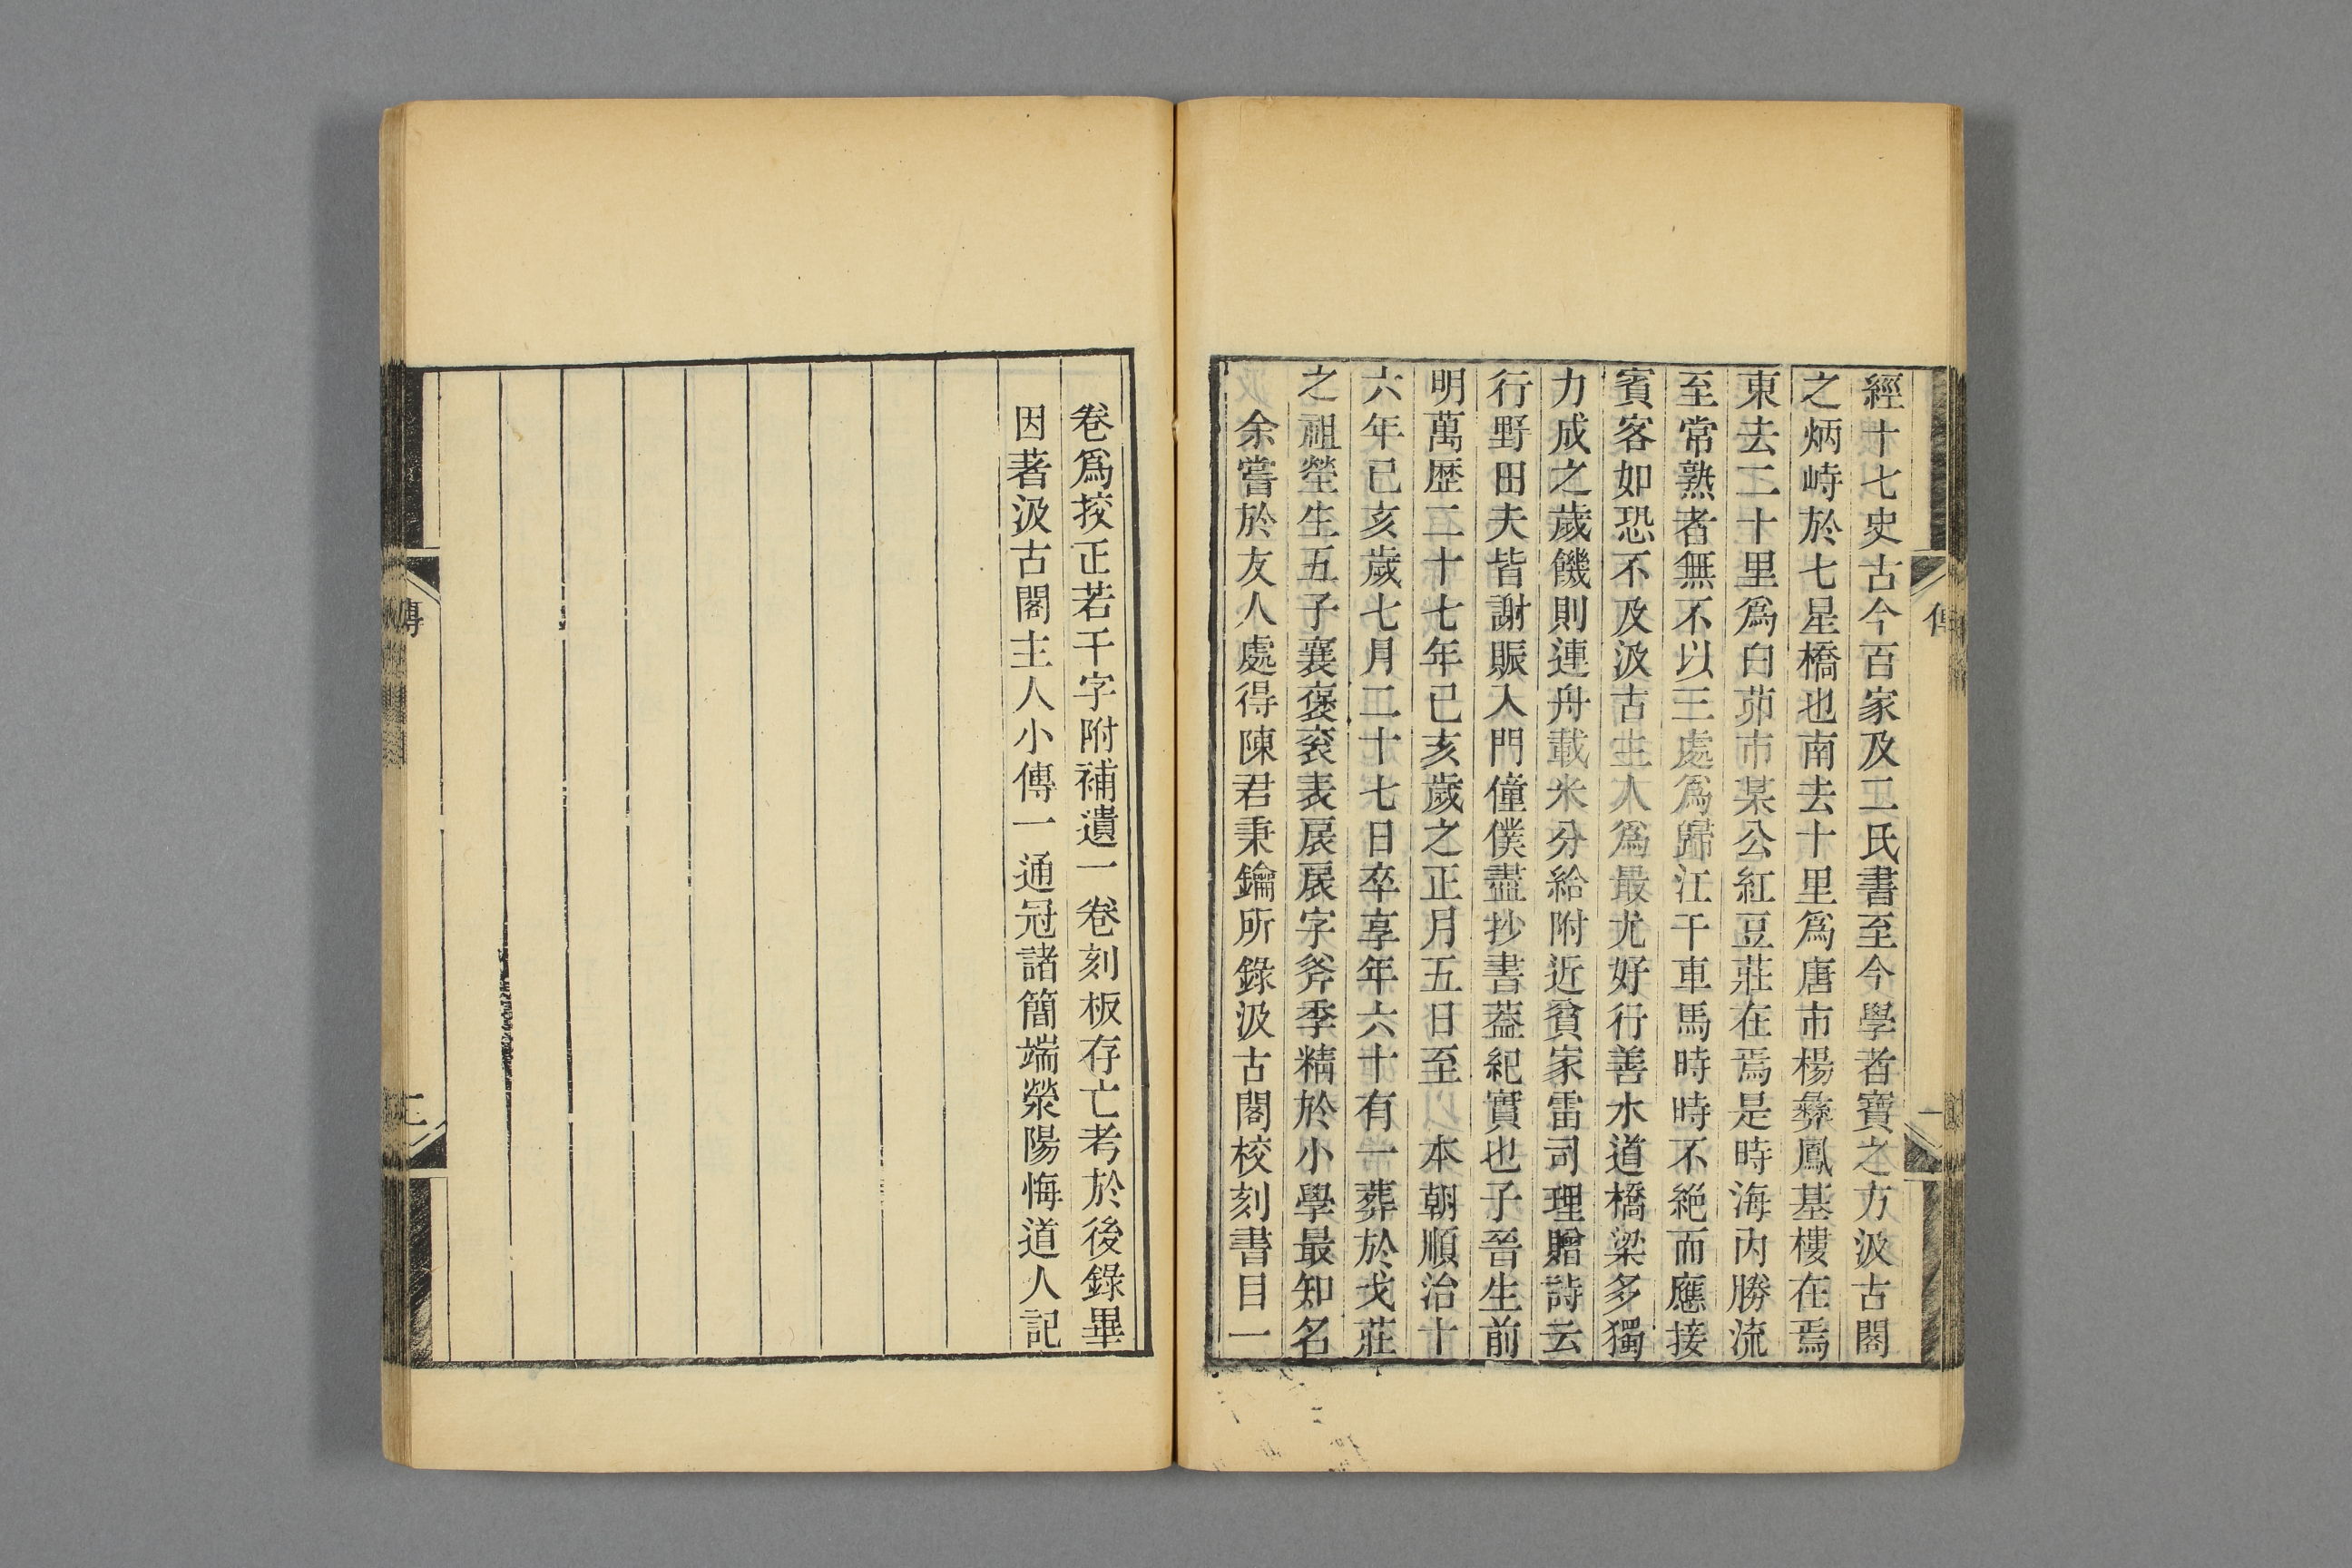 經十七史古今百家及二氏書至今學者寶之方汲古閣
之炳峙於七星橋也南去十里爲唐市楊彝鳳基樓在焉
東去二十里爲白茆市某公紅豆莊在焉是時海內勝流
至常熟者無不以三處爲歸江干車馬時時不絶而應接
賓客如恐不及汲古主人爲最尤好行善水道橋梁多獨
力成之歲饑則連舟載米分給附近貧家雷司理贈詩云
行野田夫皆謝賑入門僮僕盡抄書葢紀實也子晉生前
明萬歷二十七年已亥歲之正月五日至 本朝順治十
六年已亥歲七月二十七日卒享年六十有一葬於戈莊
之祖塋生五子襄褒衮表扆扆字斧季精於小學最知名
余嘗於友人處得陳君秉鑰所錄汲古閣校刻書目一
卷爲挍正若干字附補遺一卷刻板存亡考於後錄畢
因著汲古閣主人小傳一通冠諸簡端滎陽悔道人記
傳
二